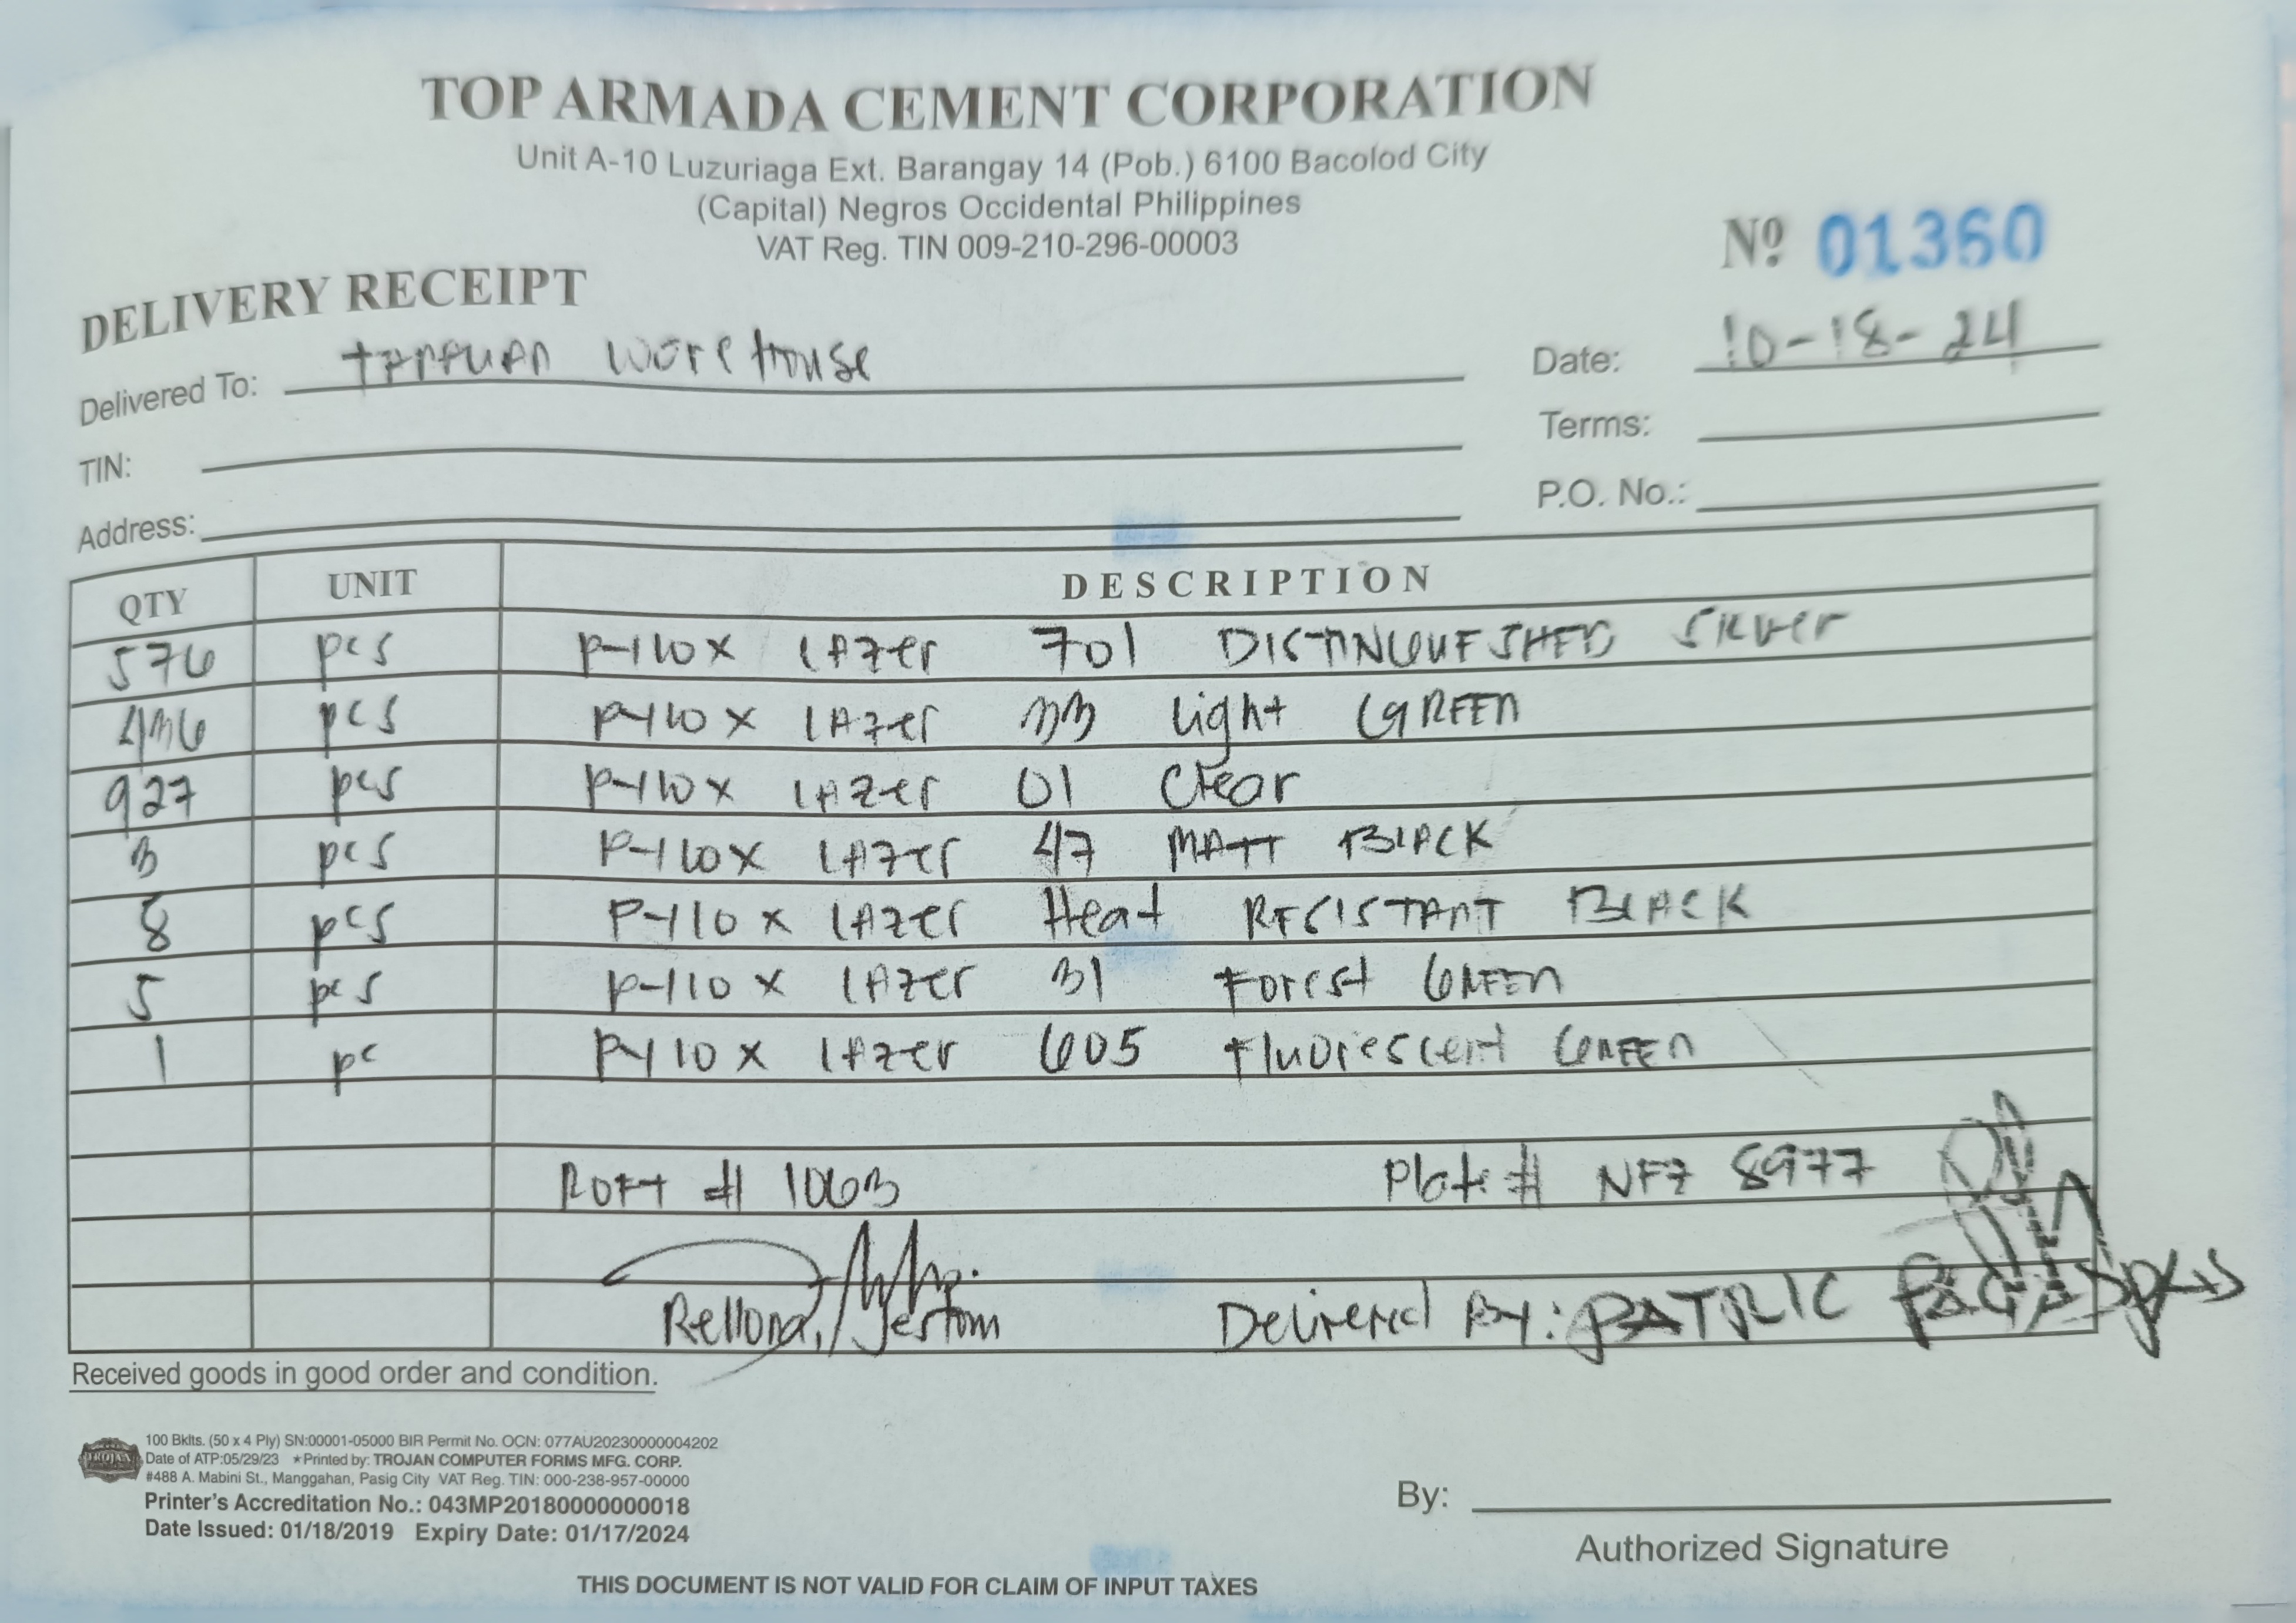 TOP ARMADA CEMENT CORPORATION
Unit A-10 Luzuriaga Ext. Barangay 14 (Pob.) 6100 Bacolod City
(Capital) Negros Occidental Philippines
VAT Reg. TIN 009-210-296-00003
Nº 01360
DELIVERY RECEIPT
Delivered To: WareHouse
Date: 10-18-24
TIN:
Terms:
Address:
P.O. No.:
QTY UNIT DESCRIPTION
576 pcs P-110 x LAZer 701 DISTINGUEISHED SILVer
436 pcs P-110 x LAZer 33 Light GREEN
927 pcs P-110 x LAZer 01 Clear
3 pcs P-110 x LAZer 47 MATT BLACK
8 pcs P-110 x LAZer Heat RESISTANT BLACK
5 pcs P-110 x LAZer 31 Forest GREEN
1 pc P-110 x LAZer 605 Fluorescent GREEN
# 1063 Plate # NFZ 8977
Rellona, Jestom Delivered By: PATRIC
Received goods in good order and condition.
TROJAN
100 Bklts. (50 x 4 Ply) SN:00001-05000 BIR Permit No. OCN: 077AU20230000004202
Date of ATP:05/29/23 ★Printed by: TROJAN COMPUTER FORMS MFG. CORP.
#488 A. Mabini St., Manggahan, Pasig City VAT Reg. TIN: 000-238-957-00000
Printer's Accreditation No.: 043MP20180000000018
Date Issued: 01/18/2019 Expiry Date: 01/17/2024
By:
Authorized Signature
THIS DOCUMENT IS NOT VALID FOR CLAIM OF INPUT TAXES